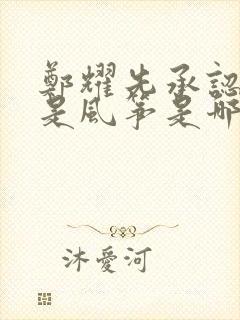 鄭耀先承認
是風箏是哪
沐愛河